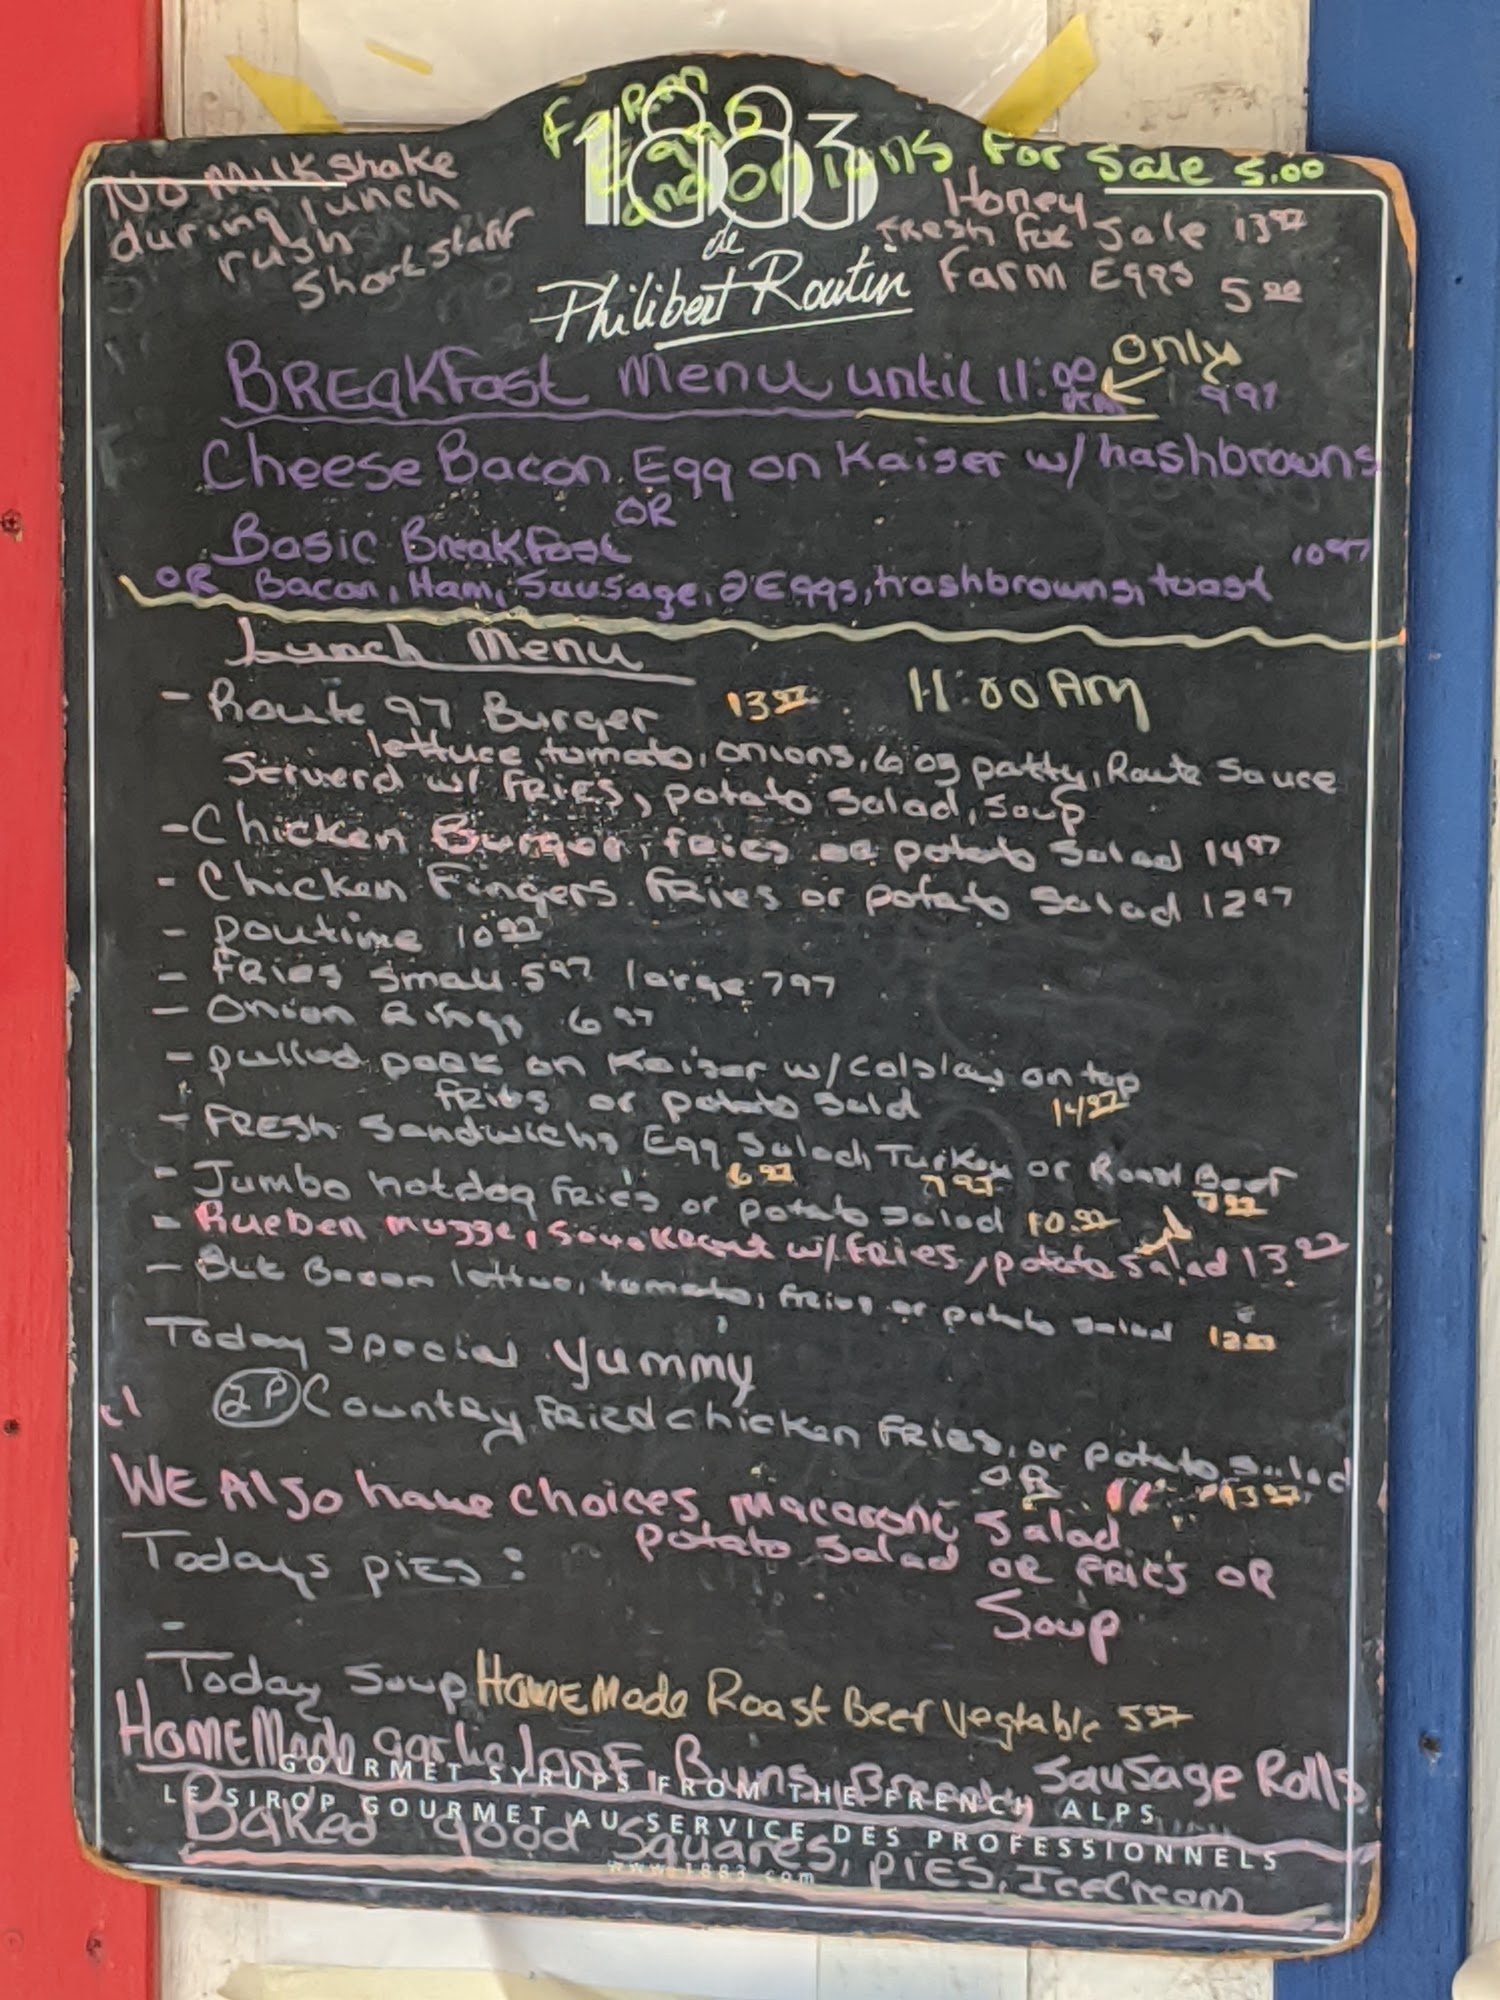 Farm
Eggs
and onions For Sale 5.00
1883
de
Philibert Routin
No Milkshake
during lunch
rush
Short Staff
Honey
Fresh For Sale 13.97
Farm Eggs 5.00
BREAKFast Menu until 11:00 AM only 9.97
Cheese Bacon Egg on Kaiser w/ hashbrowns
OR
Basic Breakfast 10.97
OR Bacon, Ham, Sausage, 2 Eggs, hashbrowns, toast
Lunch Menu
11:00 AM
- Route 97 Burger 13.97
lettuce, tomato, onions, 6 oz patty, Route Sauce
Serverd w/ FRIES, potato salad, soup
- Chicken Burger, fries or potato salad 14.97
- Chicken Fingers fries or potato salad 12.97
- Poutime 10.97
- Fries small 5.97 large 7.97
- Onion Rings 6.97
- pulled pork on Kaiser w/ Colslaw on top
fries or potato sald 14.97
- FRESH Sandwichs Egg Salad, Turkey or Roast Beef
6.97 7.97 7.97
- Jumbo hotdog fries or potato salad 10.97
- Rueben w/ fries, potato salad 13.97
- Blt Bacon lettuc, tomato, fries or potato salad
Today special yummy
2P Country Fried chicken Fries, or potato salad
OR 13.97
WE Also have choices macaroni salad
potato salad OR FRIES OR
Soup
Todays pies:
-
Today Soup HomeMade Roast Beef Vegtable 5.97
HomeMade garlic loaf, Buns, Bread, Sausage Rolls
GOURMET SYRUPS FROM THE FRENCH ALPS
LE SIROP GOURMET AU SERVICE DES PROFESSIONNELS
Baked good squares, pies, IceCream
www.1883.com